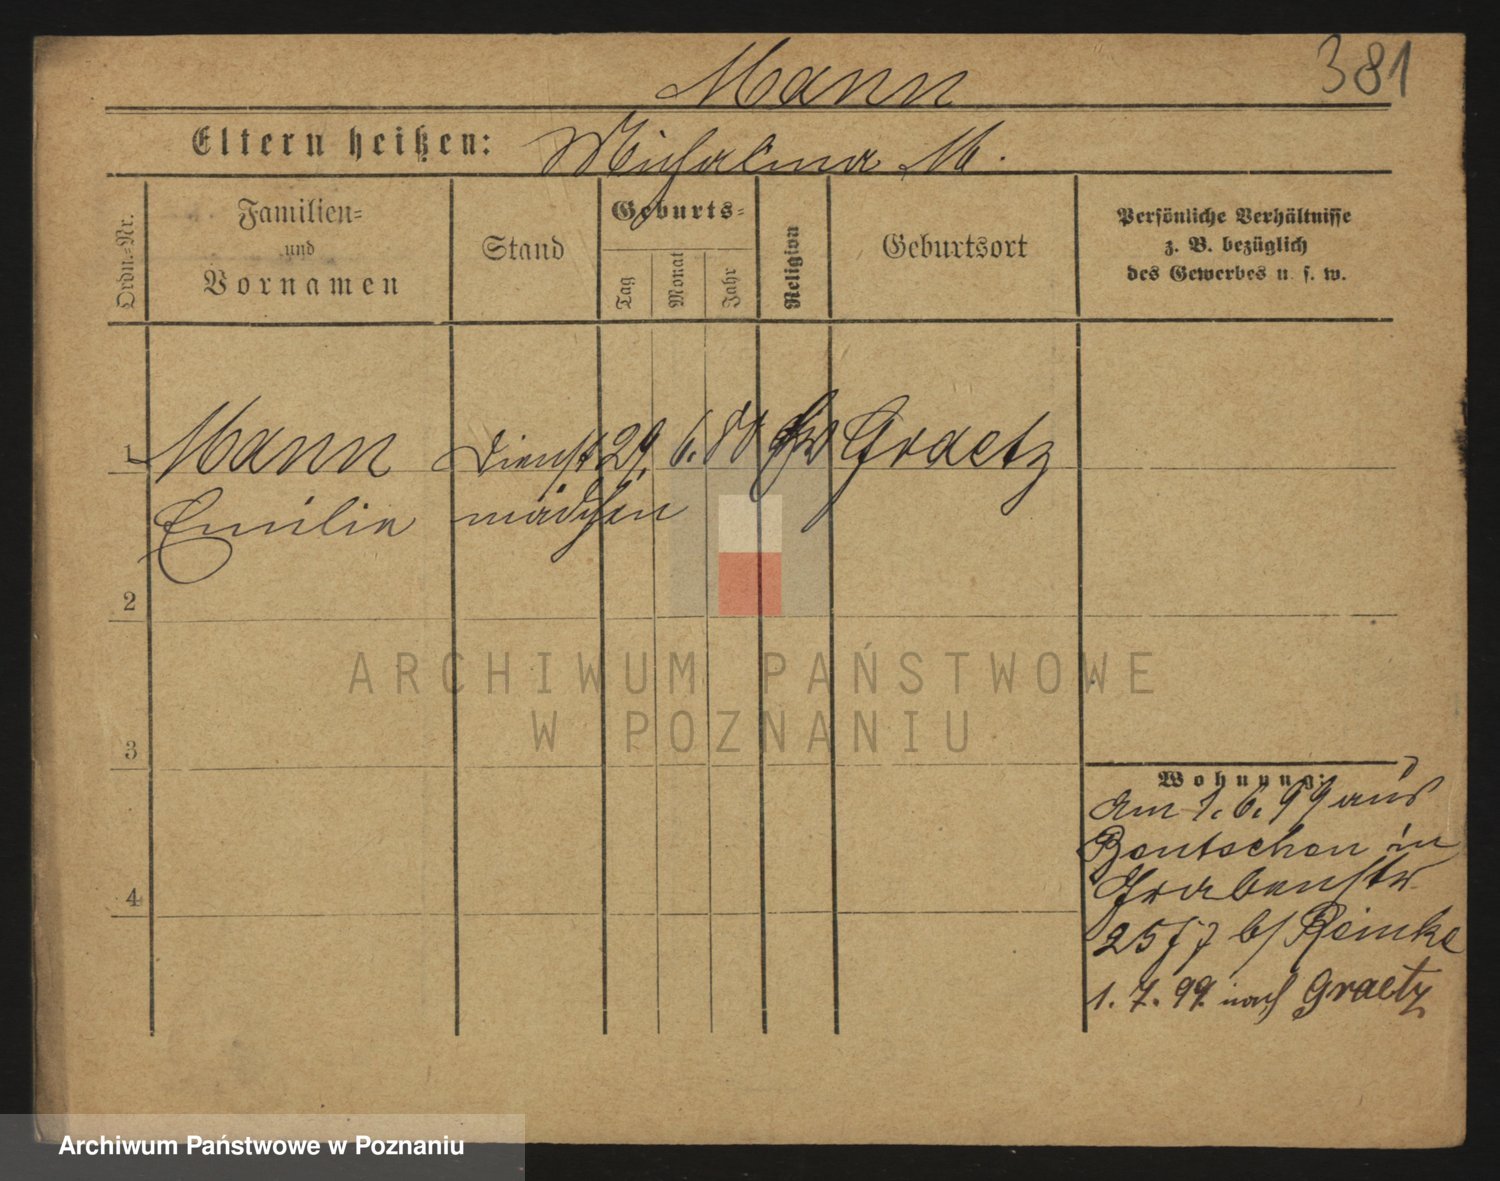 381
Mann
Eltern heißen: Michalina M.
Ordn.-Nr.
Familien-
und
Vornamen
Stand
Geburts-
Tag
Monat
Jahr
Religion
Geburtsort
Persönliche Verhältnisse
z. B. bezüglich
des Gewerbes u. s. w.
1 Mann Dienst 29. 6. 80 Graetz
Emilie mädchen
2
3
4
Wohnung:
am 1. 6. 99 aus
Bentschen in
Grabenstr
25 b/ Reinke
1. 7. 99. nach Graetz
ARCHIWUM PAŃSTWOWE
W POZNANIU
Archiwum Państwowe w Poznaniu